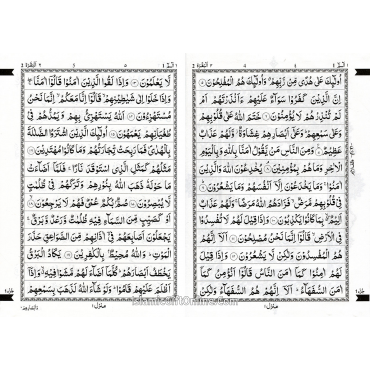 اُولٰٓئِكَ عَلٰى هُدًى مِّنْ رَّبِّهِمْ وَاُولٰٓئِكَ هُمُ الْمُفْلِحُوْنَ
اِنَّ الَّذِيْنَ كَفَرُوْا سَوَآءٌ عَلَيْهِمْ ءَاَنْذَرْتَهُمْ اَمْ
لَمْ تُنْذِرْهُمْ لَا يُؤْمِنُوْنَ خَتَمَ اللّٰهُ عَلٰى قُلُوْبِهِمْ
وَعَلٰى سَمْعِهِمْ وَعَلٰٓى اَبْصَارِهِمْ غِشَاوَةٌ وَّلَهُمْ عَذَابٌ
عَظِيْمٌ وَمِنَ النَّاسِ مَنْ يَّقُوْلُ اٰمَنَّا بِاللّٰهِ وَبِالْيَوْمِ
الْاٰخِرِ وَمَا هُمْ بِمُؤْمِنِيْنَ يُخٰدِعُوْنَ اللّٰهَ وَالَّذِيْنَ
اٰمَنُوْا وَمَا يَخْدَعُوْنَ اِلَّآ اَنْفُسَهُمْ وَمَا يَشْعُرُوْنَ
فِيْ قُلُوْبِهِمْ مَّرَضٌ فَزَادَهُمُ اللّٰهُ مَرَضًا وَلَهُمْ عَذَابٌ
اَلِيْمٌ بِمَا كَانُوْا يَكْذِبُوْنَ وَاِذَا قِيْلَ لَهُمْ لَا تُفْسِدُوْا
فِي الْاَرْضِ قَالُوْٓا اِنَّمَا نَحْنُ مُصْلِحُوْنَ اَلَآ اِنَّهُمْ
هُمُ الْمُفْسِدُوْنَ وَلٰكِنْ لَّا يَشْعُرُوْنَ وَاِذَا قِيْلَ
لَهُمْ اٰمِنُوْا كَمَآ اٰمَنَ النَّاسُ قَالُوْٓا اَنُؤْمِنُ كَمَآ
اٰمَنَ السُّفَهَآءُ اَلَآ اِنَّهُمْ هُمُ السُّفَهَآءُ وَلٰكِنْ
لَّا يَعْلَمُوْنَ وَاِذَا لَقُوا الَّذِيْنَ اٰمَنُوْا قَالُوْٓا اٰمَنَّا
وَاِذَا خَلَوْا اِلٰى شَيٰطِيْنِهِمْ قَالُوْٓا اِنَّا مَعَكُمْ اِنَّمَا نَحْنُ
مُسْتَهْزِءُوْنَ اَللّٰهُ يَسْتَهْزِئُ بِهِمْ وَيَمُدُّهُمْ فِيْ
طُغْيَانِهِمْ يَعْمَهُوْنَ اُولٰٓئِكَ الَّذِيْنَ اشْتَرَوُا الضَّلٰلَةَ
بِالْهُدٰى فَمَا رَبِحَتْ تِّجَارَتُهُمْ وَمَا كَانُوْا مُهْتَدِيْنَ
مَثَلُهُمْ كَمَثَلِ الَّذِي اسْتَوْقَدَ نَارًا فَلَمَّآ اَضَآءَتْ
مَا حَوْلَهٗ ذَهَبَ اللّٰهُ بِنُوْرِهِمْ وَتَرَكَهُمْ فِيْ ظُلُمٰتٍ
لَّا يُبْصِرُوْنَ صُمٌّۢ بُكْمٌ عُمْيٌ فَهُمْ لَا يَرْجِعُوْنَ
اَوْ كَصَيِّبٍ مِّنَ السَّمَآءِ فِيْهِ ظُلُمٰتٌ وَّرَعْدٌ وَّبَرْقٌ
يَجْعَلُوْنَ اَصَابِعَهُمْ فِيْٓ اٰذَانِهِمْ مِّنَ الصَّوَاعِقِ حَذَرَ
الْمَوْتِ وَاللّٰهُ مُحِيْطٌۢ بِالْكٰفِرِيْنَ يَكَادُ الْبَرْقُ
يَخْطَفُ اَبْصَارَهُمْ كُلَّمَآ اَضَآءَ لَهُمْ مَّشَوْا فِيْهِ وَاِذَآ
اَظْلَمَ عَلَيْهِمْ قَامُوْا وَلَوْ شَآءَ اللّٰهُ لَذَهَبَ بِسَمْعِهِمْ